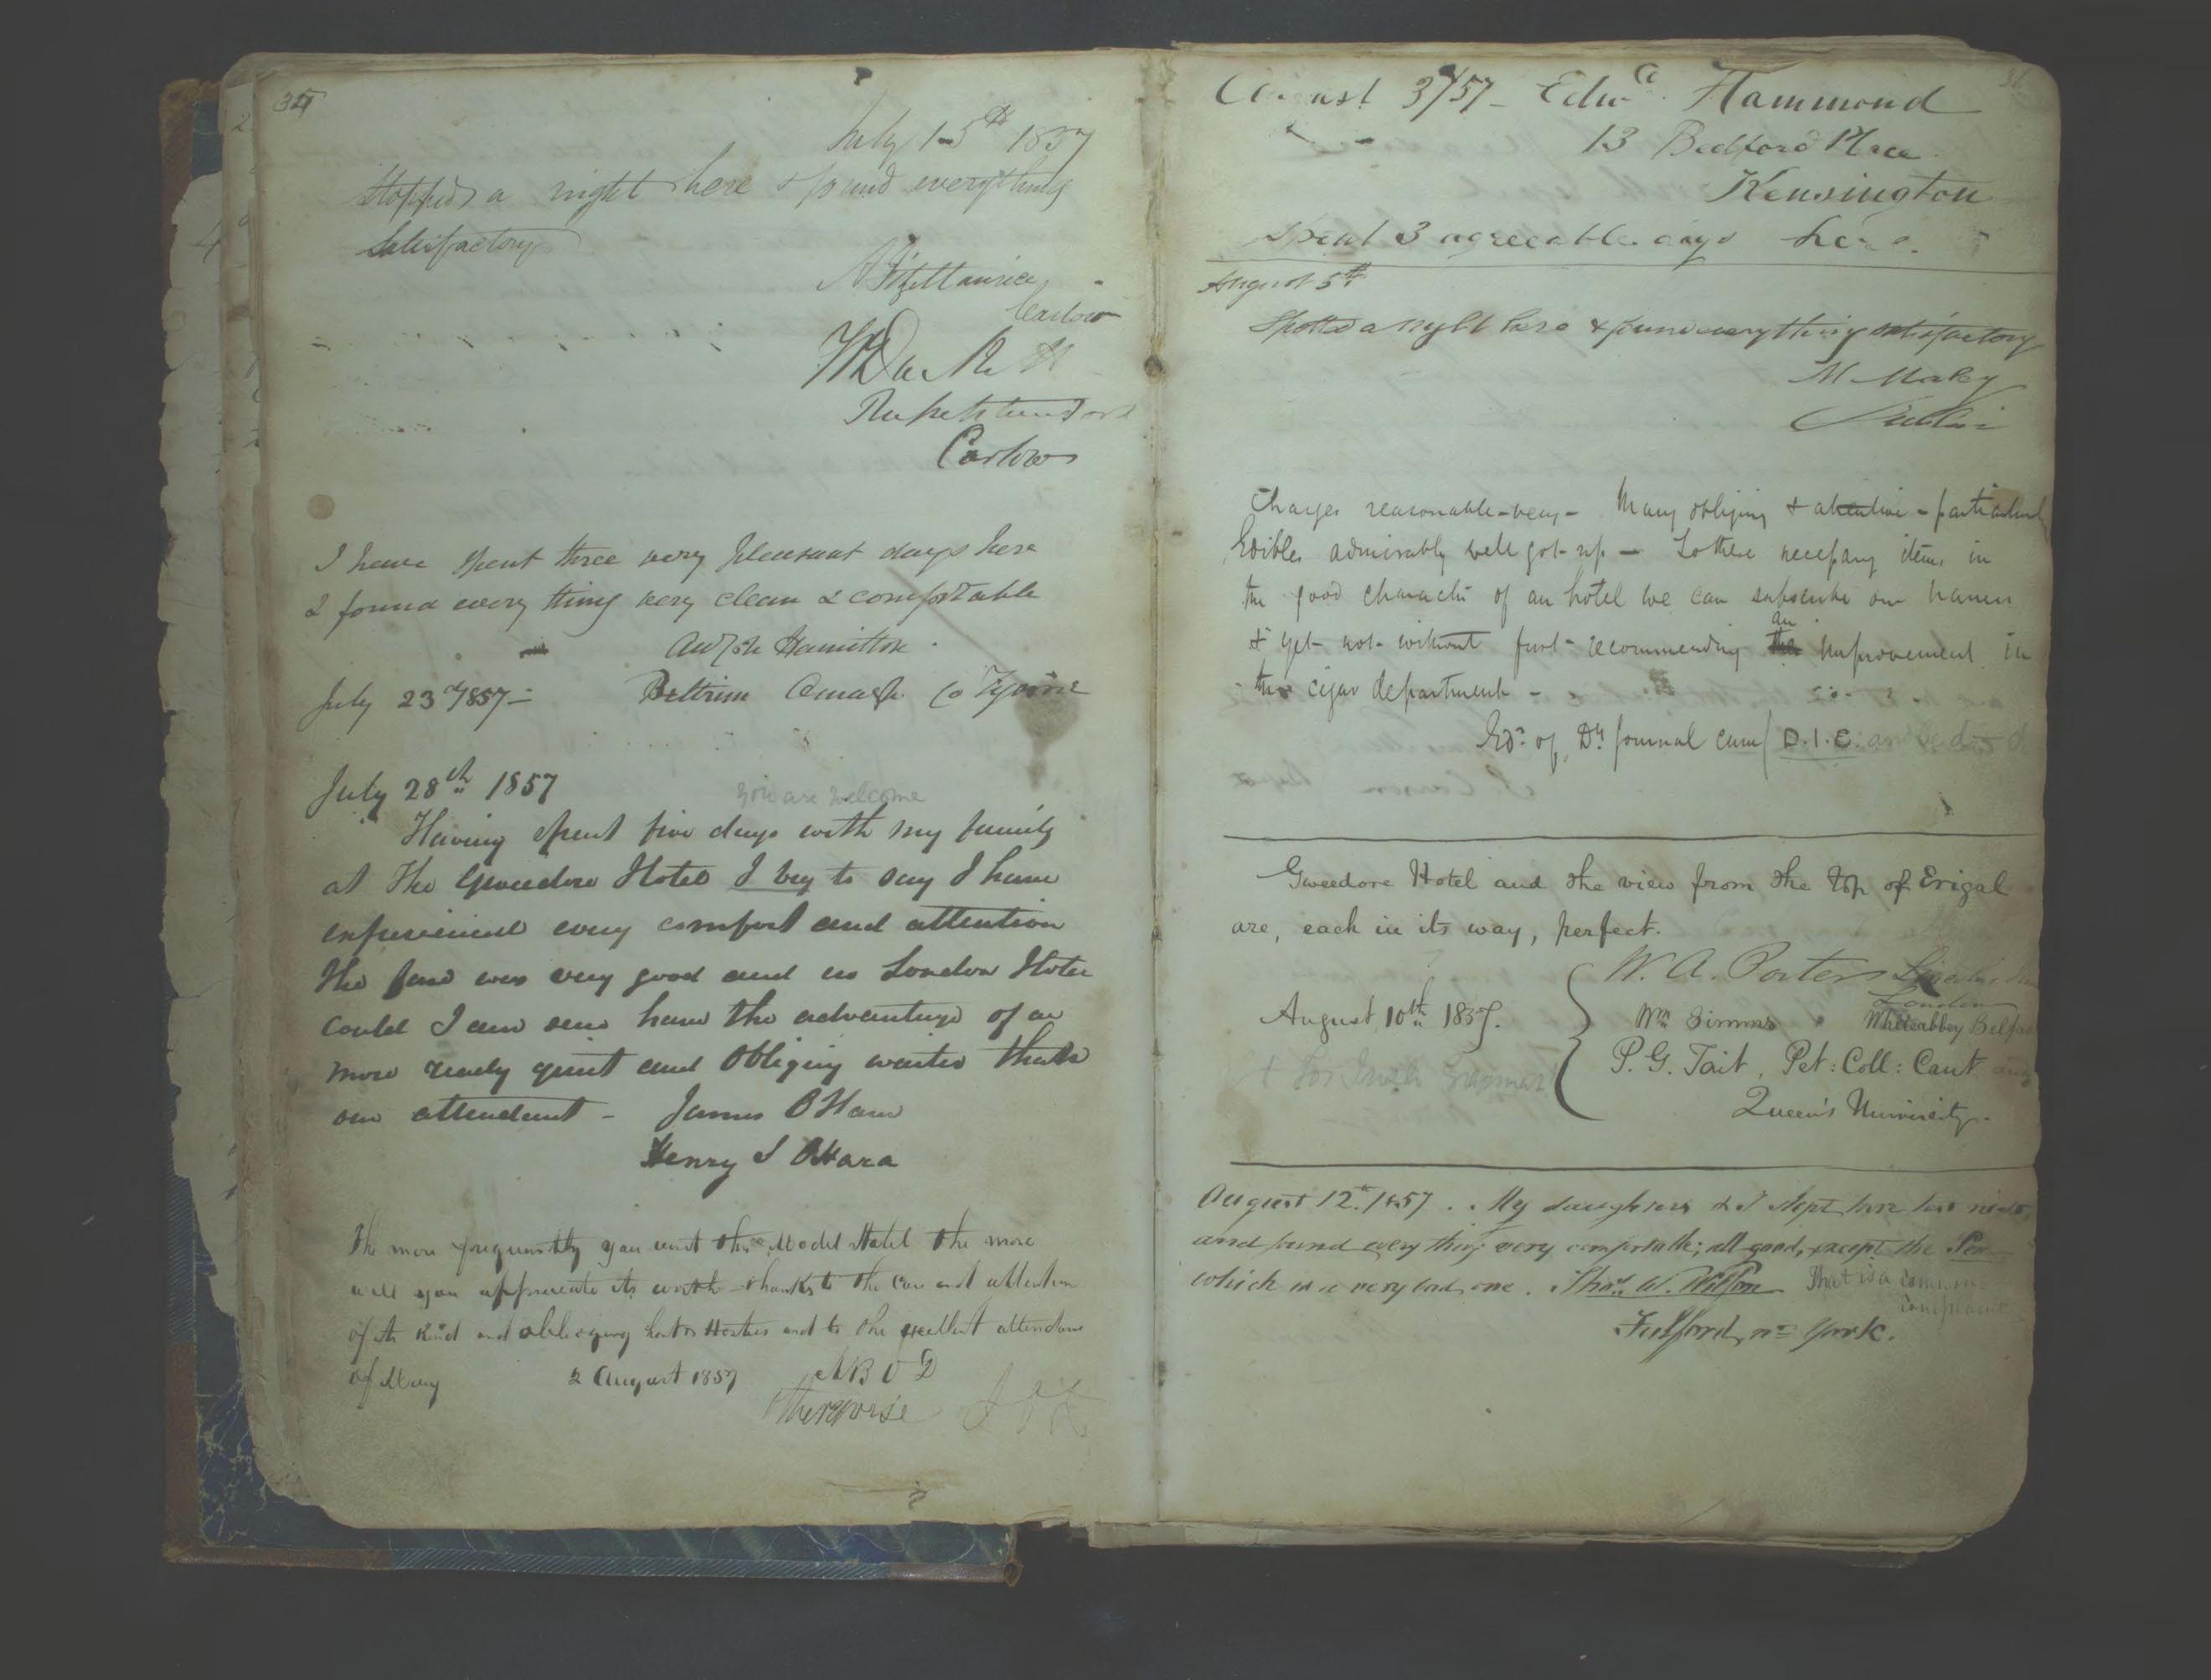 35
July 15th 1857
Stopped a night here & found everything
Satisfactory
A FitzMaurice
Carlow
W Duckett
Russelstown
Carlow
I have spent three very pleasant days here
& found every thing very clean & comfortable
Hamilton
July 23d 1857 - Beltrim Omagh Co Tyrone
July 28th 1857
you are welcome
Having spent five days with my family
at the Gweedore Hotel I beg to say I have
experienced every comfort and attention
The fare was very good and no London Hotel
could I am sure have the advantage of a
more ready quiet and obliging waiter than
our attendant - James O'Hara
Henry S O'Hara
The more frequently you visit this Model Hotel the more
will you appreciate its worth - thanks to the care and attention
of its kind and obliegeing host & Hostess and to the excellent attendance
of Mary 2 August 1857 A B O D
Otherwise
36
August 3d/57 - Edwd Hammond
13 Bedford Place
Kensington
Spent 3 agreeable days here.
August 5th
Spotted a night here & found everything satisfactory
M
Dublin
Charges reasonable - very - Mary obliging & attentive - particularly
Edibles admirably well got up - To these necessary items in
the good character of an hotel we can subscribe our names
& yet not without first recommending an improvement in
the cigar department -
Edr. of Dn Journal D.I.C.
Gweedore Hotel and the view from the top of Erigal
are, each in its way, perfect.
W. A. Porter Lincoln's Inn
London
August 10th 1857. Wm Simms Whiteabbey Belfast
P. G. Tait, Pet: Coll: Cant and
Queen's University.
August 12th 1857. My daughters & I slept here last night,
and found every thing very comfortable; all good, except the Pen
which is a very bad one. Thos. W. Wilson That is a common
complaint
Fulford, nr York.